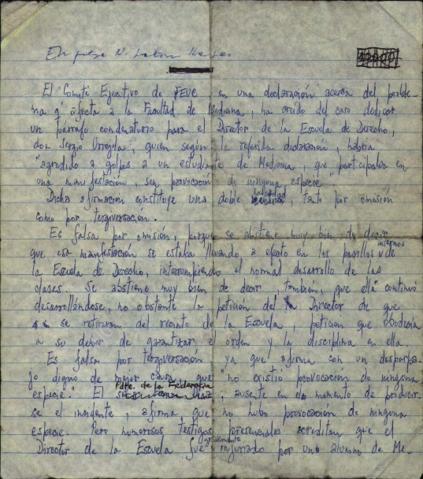 El Comité Ejecutivo de FEUC en una declaración acerca del proble-
ma q' afecta a la Facultad de Medicina, ha creído del caso dedicar
un párrafo condenatorio para el Director de la Escuela de Derecho,
don Sergio Urrejola, quien según la referida declaración, habría
"agredido a golpes a un estudiante de Medicina, que participaba en
una manifestación, sin provocación de ninguna especie".
Dicha afirmación constituye una doble falsedad, tanto por omisión
como por tergiversación.
Es falsa por omisión, porque se abstiene muy bien de decir
que esa manifestación se estaba llevando a efecto en los pasillos internos de
la Escuela de Derecho, interrumpiendo el normal desarrollo de las
clases. Se abstiene muy bien de decir, también, que ella continuó
desarrollándose, no obstante la petición del Director de que
se retiraran del recinto de la Escuela, petición que obedecía
a su deber de garantizar el orden y la disciplina en ella.
Es falsa por tergiversación ya que afirma con un desparpa-
jo digno de mejor causa que "no existió provocación de ninguna
especie". El Pdte. de la Federación, ausente en el momento de producir-
se el incidente, afirma que no hubo provocación de ninguna
especie. Pero numerosos testigos presenciales acreditan que el
Director de la Escuela fue injuriado por un alumno de Me-